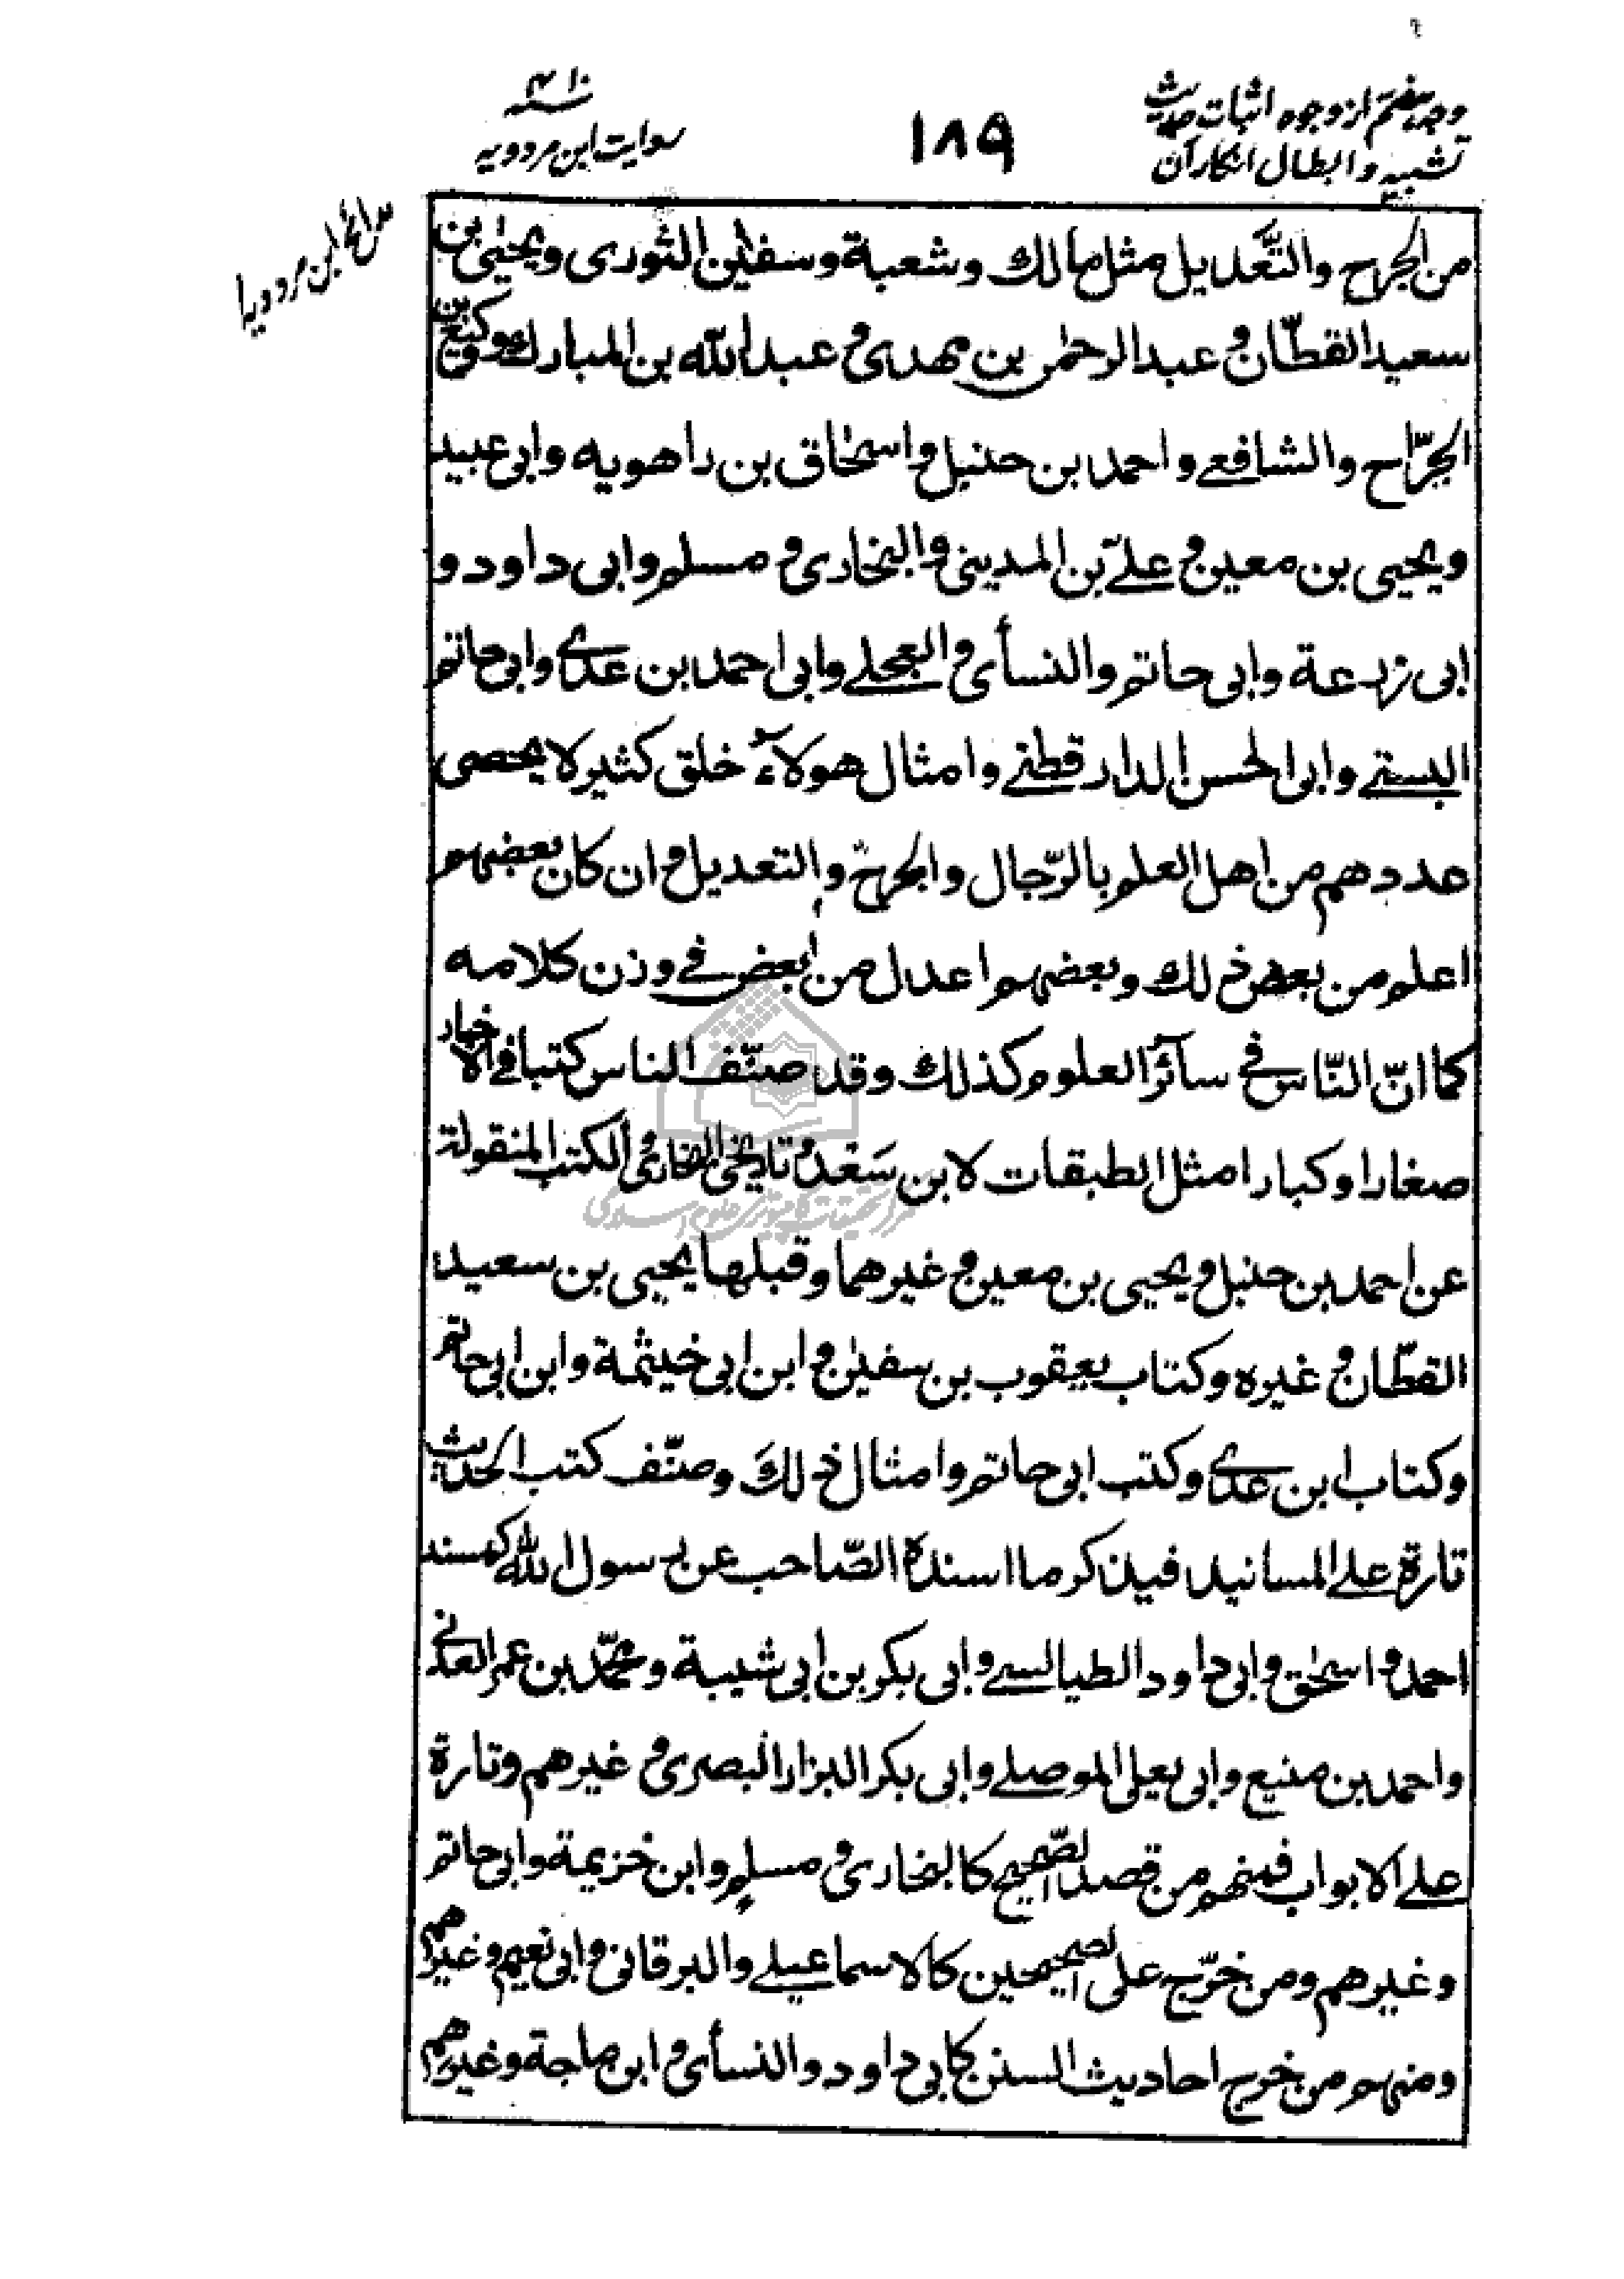 وجه هفتم از وجوه اثبات حدیث
تشبیه و ابطال انکار آن
۱۸۹
سنه ۴۱۰
روایت ابن مردویه
ابن مردویه
من الجرح والتَّعديل مثل مالك وشعبة وسفين الثورى ويحيى بن
سعيد القطّان وعبد الرحمٰن بن مهدى وعبد الله بن المبارك ووكيع بن
الجرّاح والشافعے واحمد بن حنبل واسحٰاق بن راهويه وابى عبيد
ويحيى بن معين وعلےّ بن المدينى والبخارى ومسلم وابى داود و
ابى زرعة وابى حاتم والنسأى والعجلے وابى احمد بن عدے وابى حاتم
البستے وابى الحسن الدار قطنے وامثال هولآء خلق كثير لا يحصى
عددهم من اهل العلم بالرّجال والجرح والتعديل وان كان بعضهم
اعلم من بعض ذلك وبعضهم اعدل من بعض فے وزن كلامه
كما انّ النّاس فے سآئر العلوم كذلك وقد صنّف الناس كتبا فے الاخبار
صغارا وكبارا مثل الطبقات لابن سَعْد وتاريخى البخارى والكتب المنقولة
عن احمد بن حنبل ويحيى بن معين وغيرهما وقبلها يحيى بن سعيد
القطّان وغيره وكتاب يعقوب بن سفيٰن وابن ابى خيثمة وابن ابى حاتم
وكتاب ابن عدے وكتب ابى حاتم وامثال ذلكَ وصنّف كتب الحديث
تارة علے المسانيد فيذكر ما اسنده الصّاحب عن رسول الله كمسند
احمد واسحٰق وابى داود الطيالسے وابى بكر بن ابى شيبة ومحمّد بن عمر العدنے
واحمد بن منيع وابى يعلى الموصلے وابى بكر البزار البصرى وغيرهم وتارة
علے الابواب فمنهم من قصد الصّحيح كالبخارى ومسلم وابن خزيمة وابى حاتم
وغيرهم ومن خرّج على الصحيحين كالاسماعيلے والبرقانى وابى نعيم وغيرهم
ومنهم من خرج احاديث السنن كابى داود والنسأى وابن ماجة وغيرهم
مرکز تحقیقات کامپیوتری علوم اسلامی